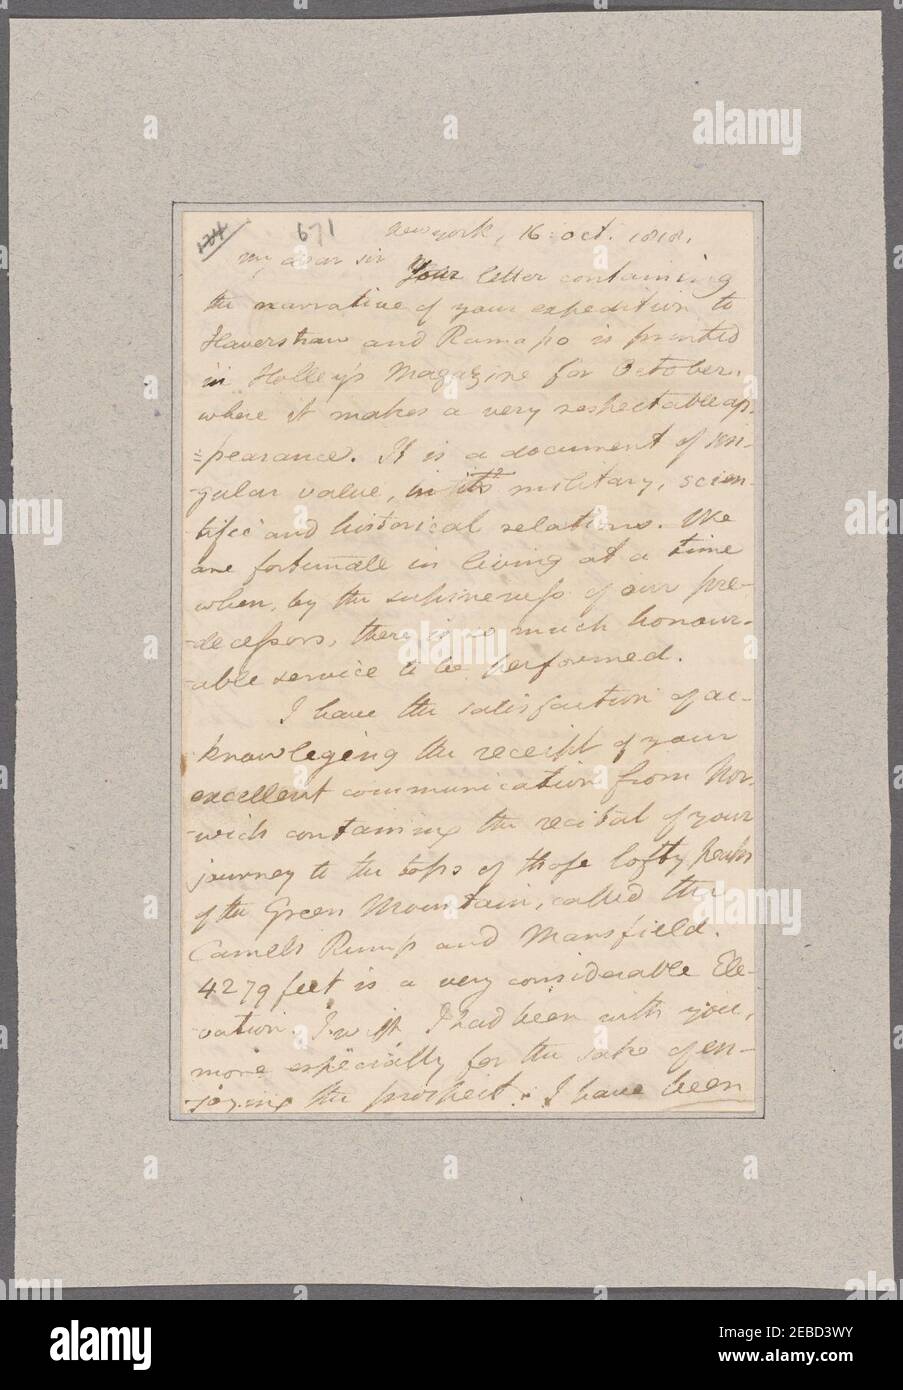 124 671 New york, 16 oct. 1818.
My dear sir Your letter containing
the narrative of your expedition to
Haverstraw and Ramapo is printed
in Holley's Magazine for October,
where it makes a very respectable ap-
=pearance. It is a document of sin-
-gular value, in its military, scien-
tific and historical relations. We
are fortunate in living at a time
when, by the supineness of our pre-
-decessors, there is so much honour-
-able service to be performed.
I have the satisfaction of ac-
knowleging the receipt of your
excellent communication from Nor-
-wich containing the recital of your
journey to the tops of those lofty peaks
of the Green Mountain, called the
Camels Rump and Mansfield.
4279 feet is a very considerable Ele-
-vation. I wish I had been with you,
more especially for the sake of en-
-joying the prospect. I have been
alamy
Image ID: 2EBD3WY
www.alamy.com